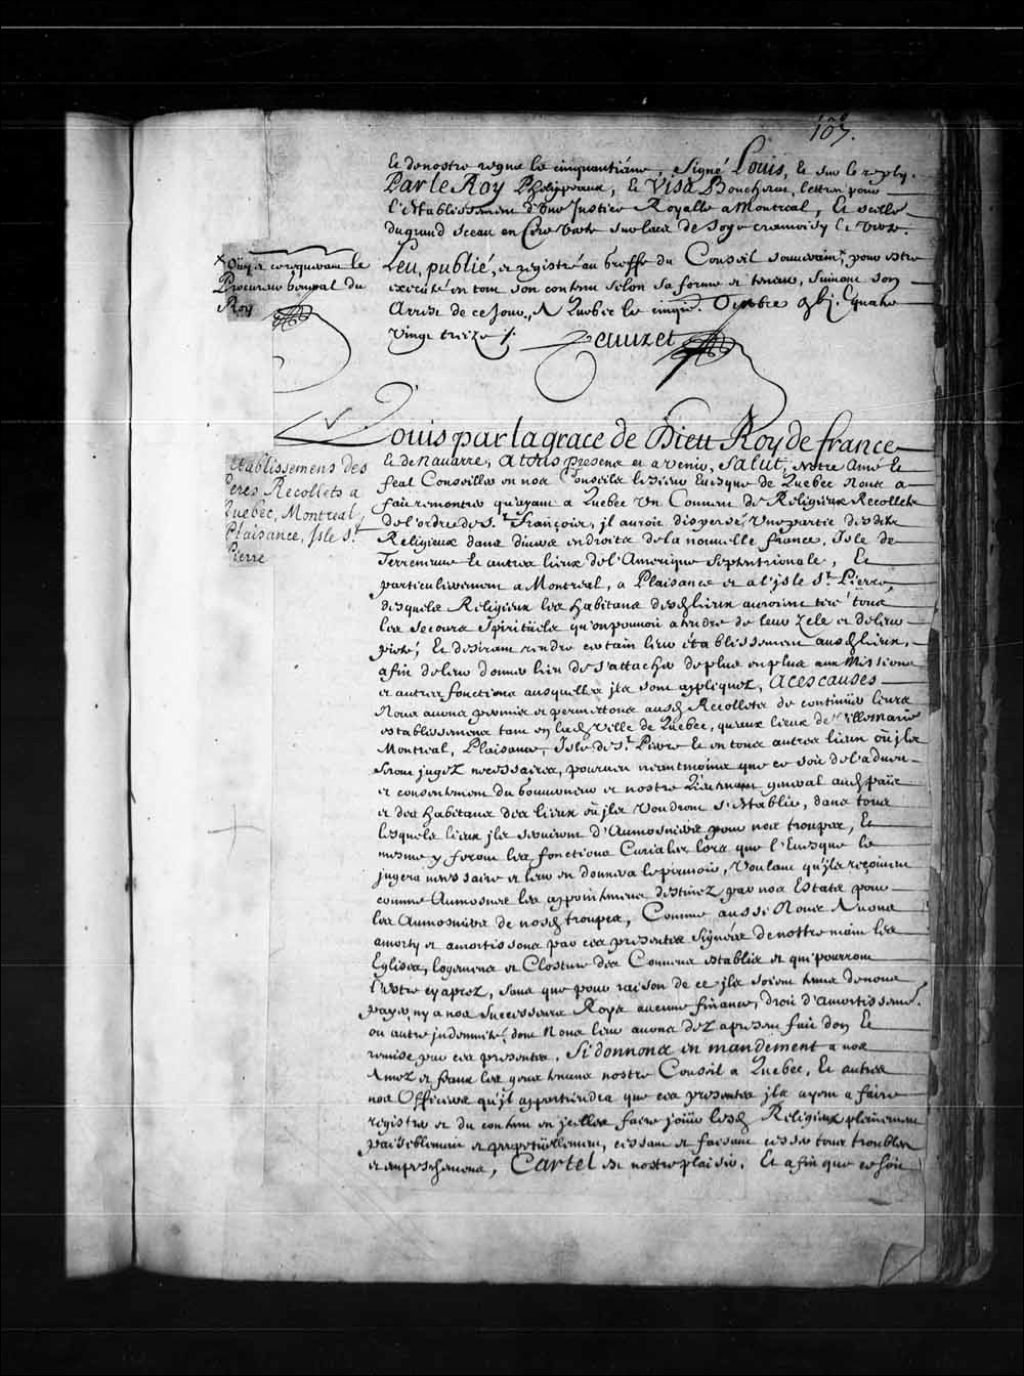 107.
Et de nostre regne le cinquantiéme, Signé Louis, Et sur le reply.
Par le Roy Phelypeaux, Et Visa Boucherat, lettres pour
l'establissement d'une Justice Royalle a Montreal, Et scellé
du grand sceau en Cire verte sur lacs de Soye cramoisy Et verte.
x Ouy et ce requerant le
Procureur general du
Roy
Leu, publié, et registré au Greffe du Conseil souverain x pour estre
executé en tout son contenu selon sa forme et teneur, suivant son
Arrest de ce Jour, A Quebec le cinqe. Octobre gbj. C quatre
vingt treize /.
Peuuret
Louis par la grace de Dieu Roy de france
Etablissemens des
Peres Recollets a
Quebec, Montreal,
Plaisance, Isle St.
Pierre
Et de Navarre, A tous presens et a venir, Salut, Notre Amé Et
feal Conseiller en nos Conseils le Sieur Evesque de Quebec Nous a
fait remontrer qu'ayant a Quebec Un Couvent de Religieux Recollets
de l'ordre de St. François, il auroit dispersé Une partie desdits
Religieux dans divers endroits de la nouvelle france, Isle de
Terreneuve Et autres lieux de l'Amerique Septentrionale, Et
particulierement a Montreal, a Plaisance et a l'isle St. Pierre,
desquels Religieux les habitans desd lieux auroient tiré tous
les secours Spirituels qu'on pouvoit attendre de leur Zele et de leur
pieté; Et desirant rendre certain leur établissement ausd lieux,
afin de leur donner lieu de s'attacher de plus en plus aux Missions
et autres fonctions ausquelles jls sont appliquez, A ces causes
Nous avons permis et permettons ausd Recollets de continuer leurs
establissemens tant en lad ville de Quebec, qu'aux lieux de Villemarie
Montreal, Plaisance, Isle de St. Pierre Et en tous autres lieux où jls
seront jugez necessaires, pourveu neantmoins que ce soit de l'adveu
et consentement du Gouverneur et nostre Lieutenant general aud païs
et des habitans des lieux où jls voudront s'establir, dans tous
lesquels lieux jls serviront d'Aumosniers pour nos troupes, Et
mesme y feront les fonctions Curiales lors que l'Evesque le
jugera necessaire et leur en donnera le pouvoir, Voulant qu'ils reçoivent
comme Aumosnes les appointemens destinez par nos Estats pour
les Aumosniers de nosd troupes, Comme aussi Nous Avons
amorty et amortissons par ces presentes signées de nostre main les
Eglises, logemens et Closture des Couvens establis et qui pourront
l'estre cy aprez, sans que pour raison de ce jls soient tenus de nous
payer, ny a nos successeurs Roys aucune finance, droit d'amortissemt.
ou autre jndemnité, dont Nous leur avons dez a present fait don Et
remise par ces presentes, Si donnons en mandement a nos
Amez et feaux les gens tenans nostre Conseil a Quebec, Et autres
nos Officiers qu'jl appartiendra que ces presentes jls ayent a faire
registrer et du contenu en jcelles faire joüir lesd Religieux pleinement
paisiblement et perpetüellement, cessant et faisant cesser tous troubles
et empeschemens, Car tel est nostre plaisir. Et afin que ce soit